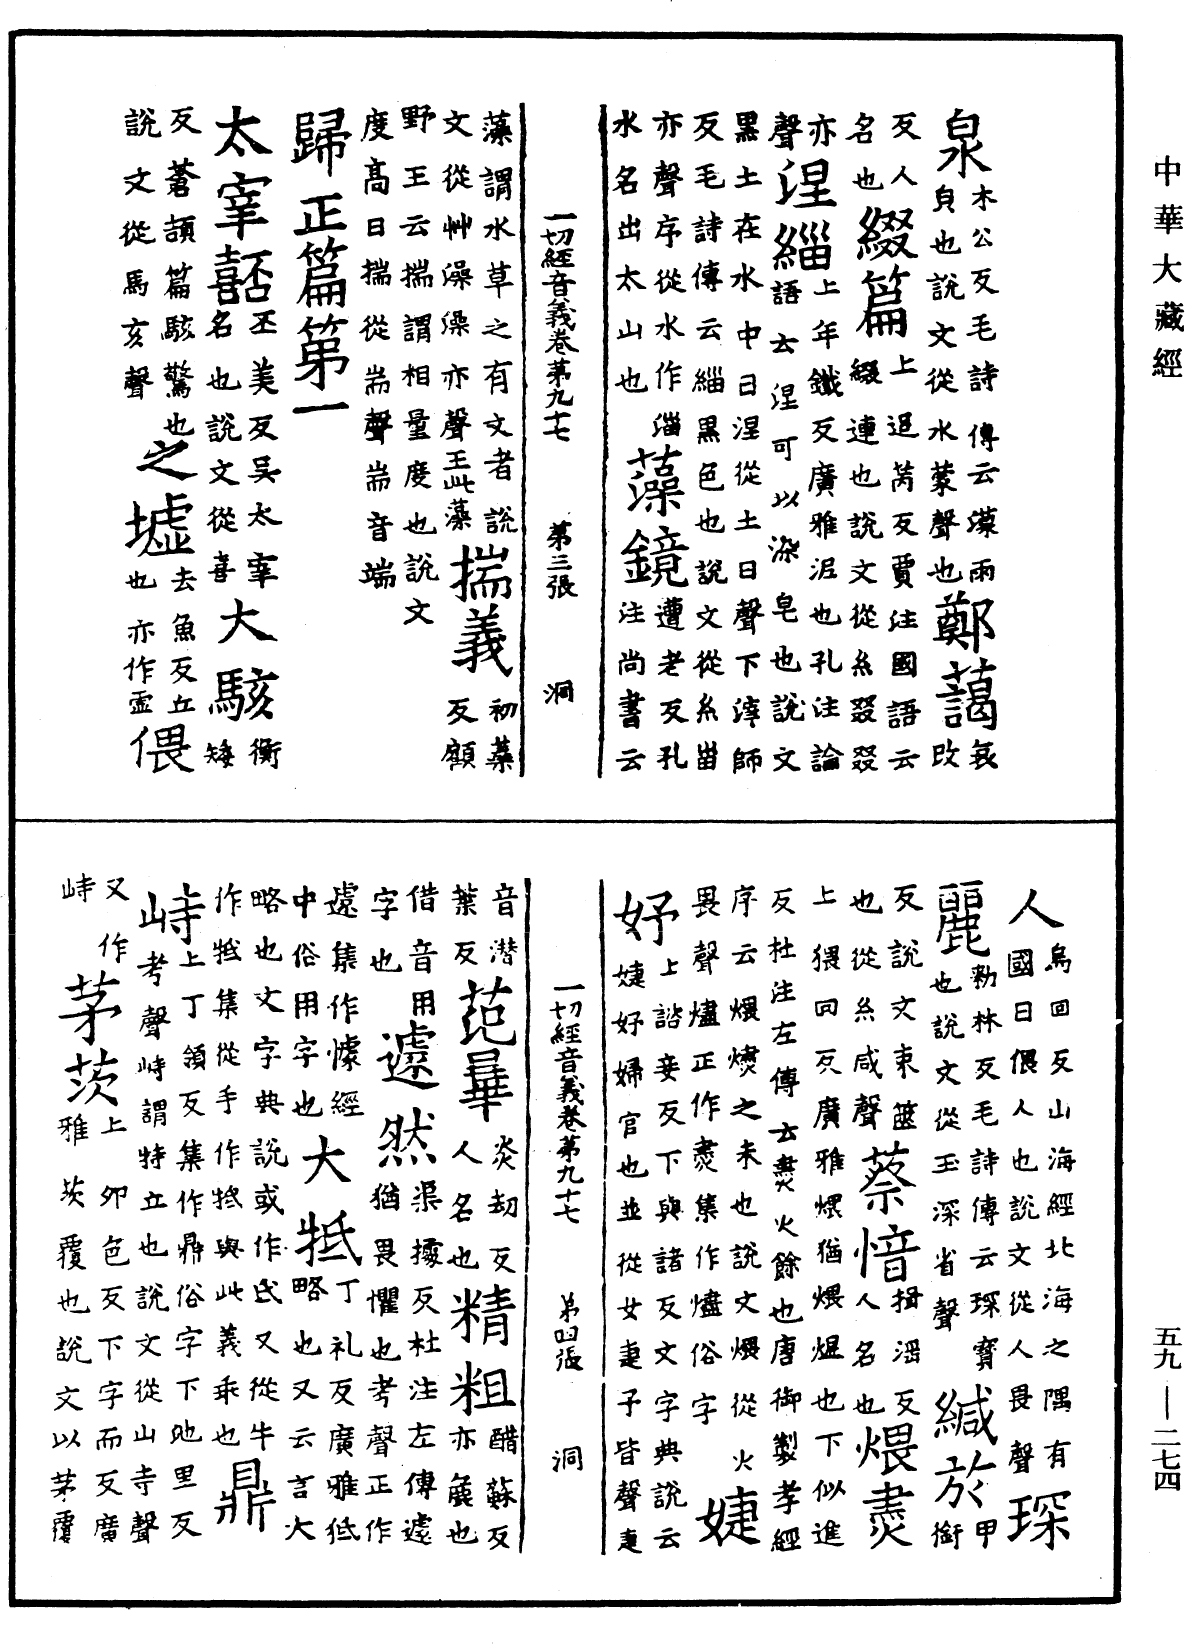 中華大藏經
泉木公反毛詩傳云濛雨
皃也說文從水蒙聲也鄭藹哀改
反人
名也綴篇上追芮反賈注國語云
綴連也說文從糸叕叕
亦
聲涅緇上年鐵反廣雅泥也孔注論
語云涅可以染皂也說文
黑土在水中曰涅從土日聲下滓師
反毛詩傳云緇黑色也說文從糸甾
亦聲序從水作淄藻鏡遭老反孔
水名出太山也注尚書云
一切經音義卷第九十七 第三張 洞
藻謂水草之有文者說
文從艸澡澡亦聲正此藻揣義初蘂
反顧
野王云揣謂相量度也說文
度高曰揣從耑聲耑音端
歸正篇第一
太宰嚭丕美反吳太宰
名也說文從喜大駭衡
矮
反蒼頡篇駭驚也
說文從馬亥聲之墟去魚反丘
也亦作虛偎
人烏回反山海經北海之隅有
國曰偎人也說文從人畏聲琛
麗勑林反毛詩傳云琛寶
也說文從玉深省聲緘於甲
銜
反說文束篋
也從糸咸聲蔡愔揖滛反
人名也煨燼
上猥回反廣雅煨猶煨熅也下似進
反杜注左傳云燼火餘也唐御製孝經
序云煨燼之未也說文煨從火
畏聲燼正作㶳集作燼俗字婕
妤上諮妾反下與諸反文字典說云
婕妤婦官也並從女疌予皆聲疌
一切經音義卷第九十七 第四張 洞
音潛
葉反范曄炎劫反
人名也精粗醋蘇反
亦麁也
借音用
字也遽然渠據反杜注左傳遽
猶畏懼也考聲正作
遽集作懅經
中俗用字也大牴丁礼反廣雅低
略也又云言大
略也文字典說或作氐又從牛
作牴集從手作抵與此義乖也鼎
峙上丁領反集作鼎俗字下池里反
考聲峙謂特立也說文從山寺聲
又作
峙茅茨上卯色反下字而反廣
雅茨覆也說文以茅覆
五九—二七四